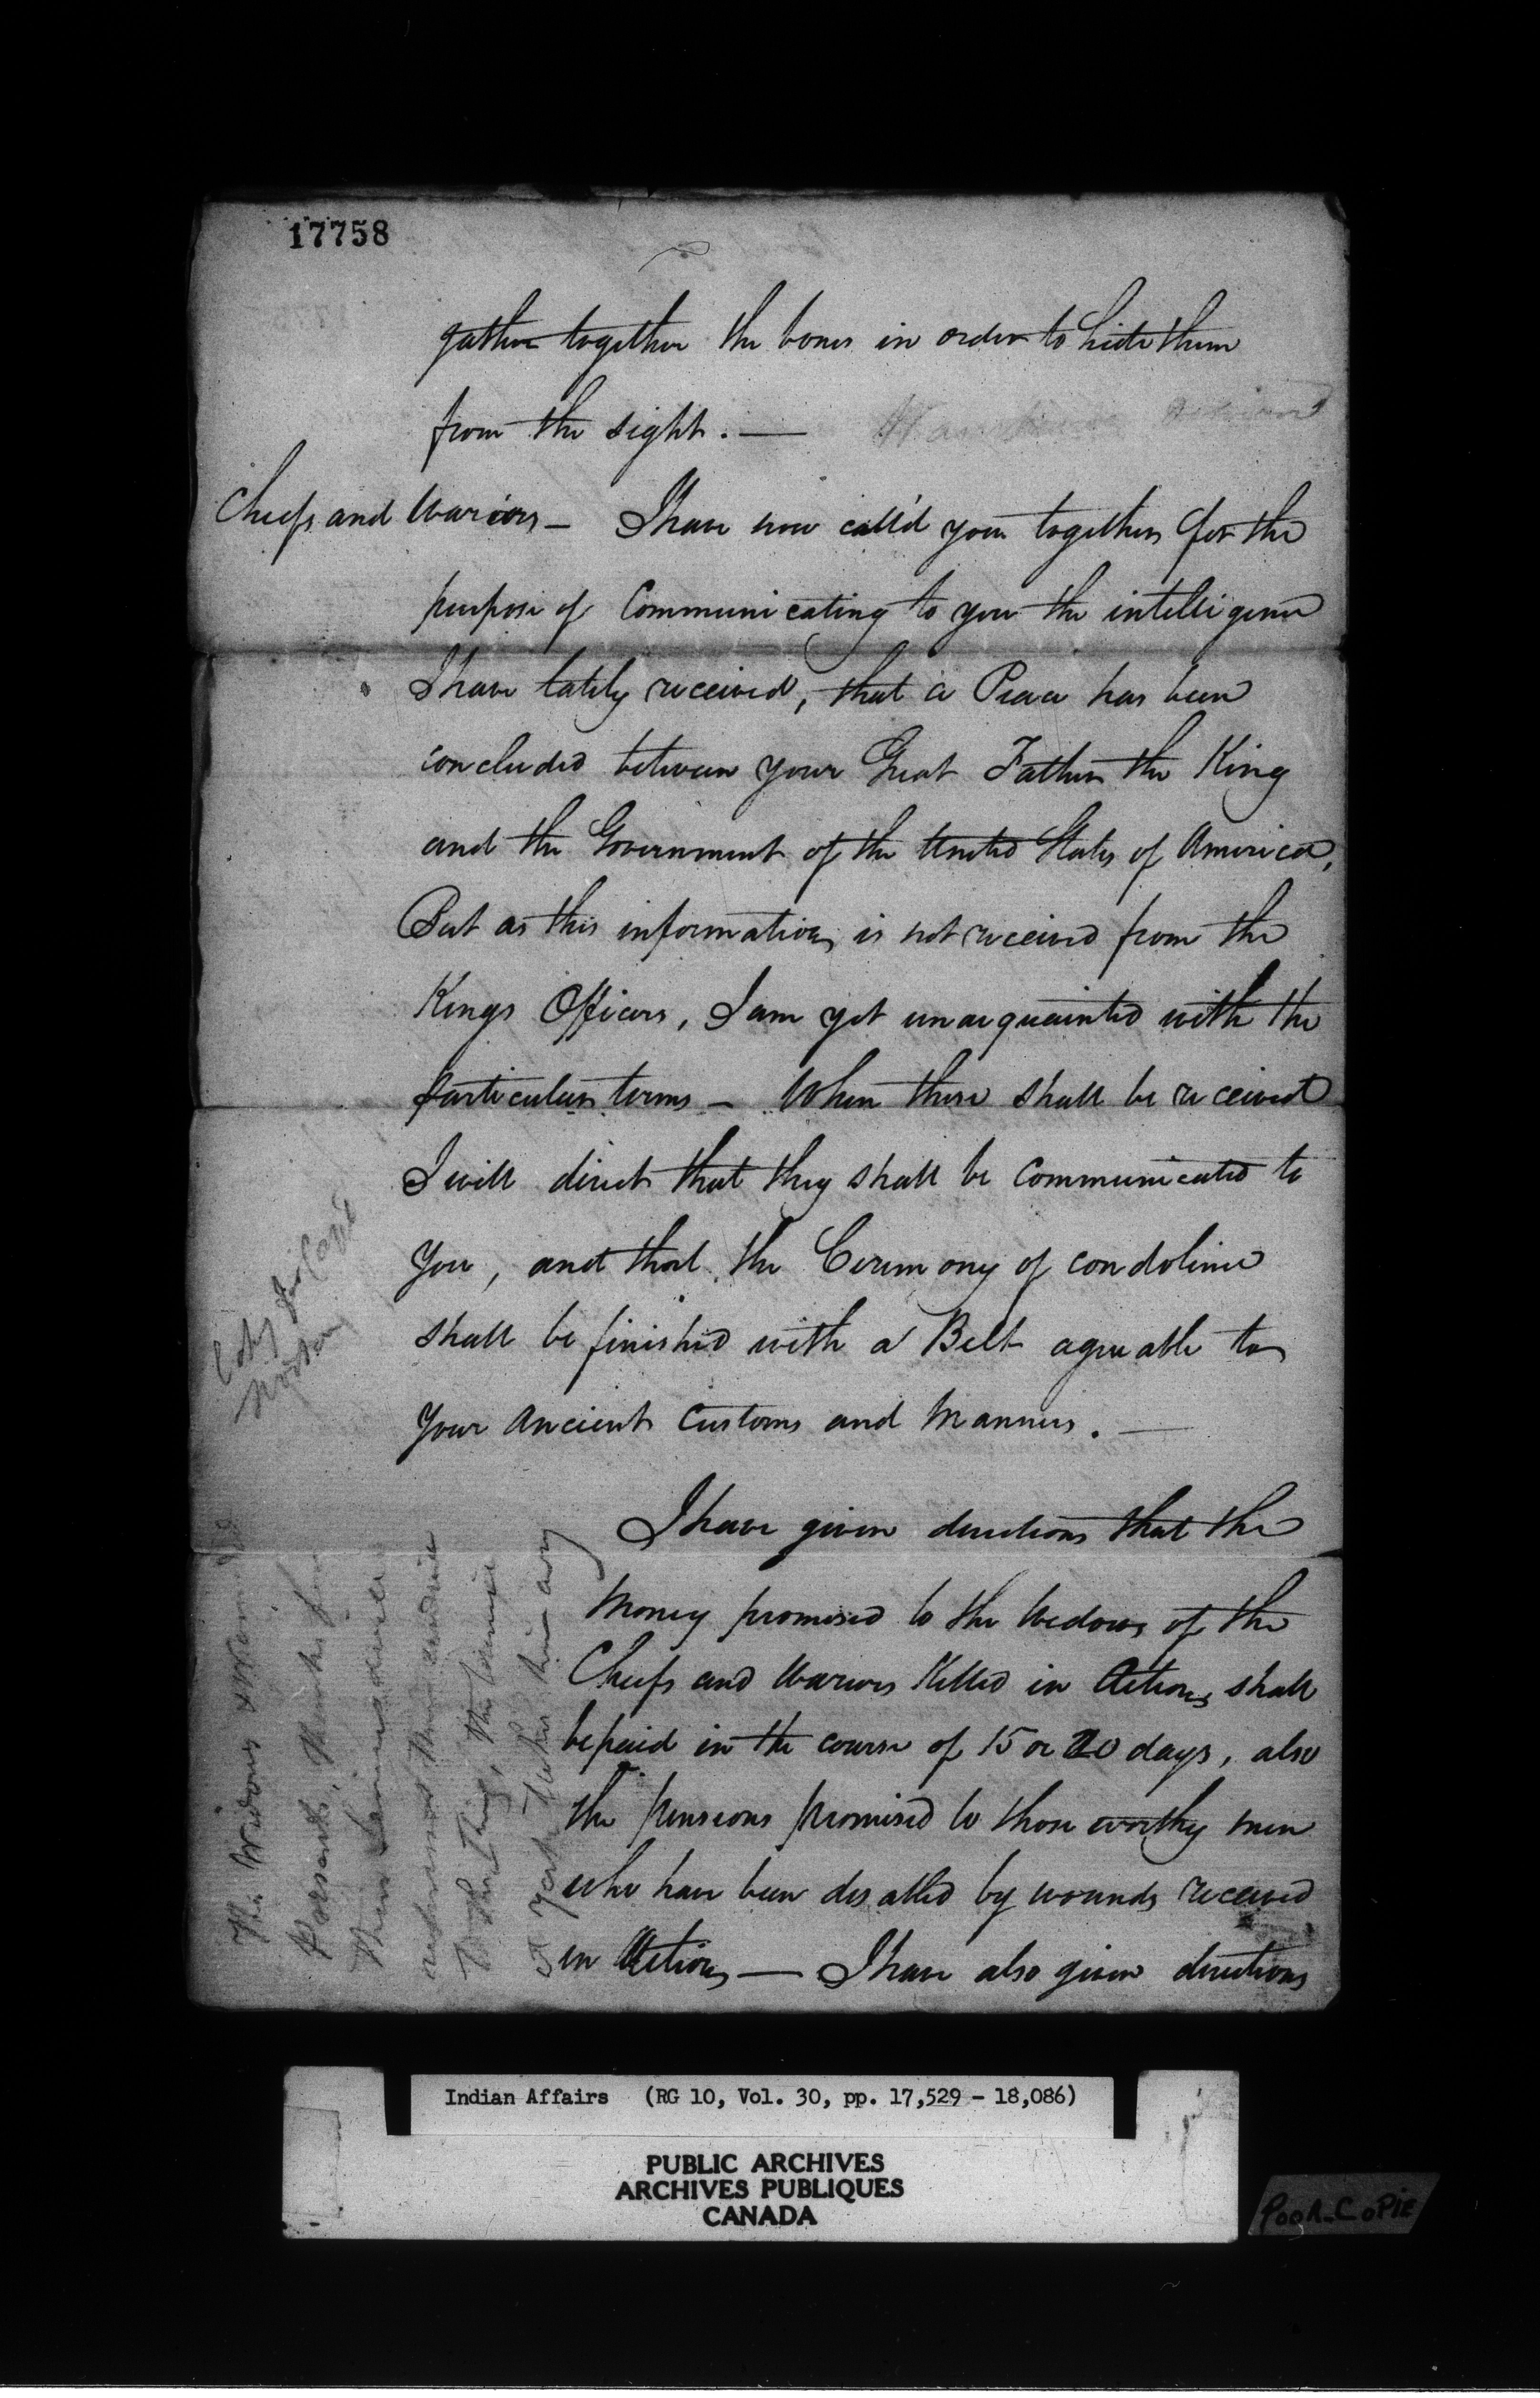 17758
gather together the bones in order to hide them
from the sight. —
Chiefs and Wariors — I have now call'd you together for the
purpose of Communicating to you the intelligence
I have lately received, that a Peace has been
concluded between your Great Father the King
and the Government of the United States of America,
But as this information is not received from the
Kings Officers, I am yet unacquainted with the
particular terms — When these shall be received
I will direct that they shall be Communicated to
You, and that the Ceremony of condolence
shall be finished with a Belt agreeable to
Your Ancient Customs and Manners. —
I have given directions that the
Money promised to the Wedows of the
Chiefs and Wariors Killed in Action, shall
be paid in the course of 15 or 20 days, also
the pensions promised to those worthy men
who have been disabled by wounds received
in Action — I have also given directions
Norton
The Widows
thank him
York takes him away
Indian Affairs (RG 10, Vol. 30, pp. 17,529 - 18,086)
PUBLIC ARCHIVES
ARCHIVES PUBLIQUES
CANADA
POOR COPIE